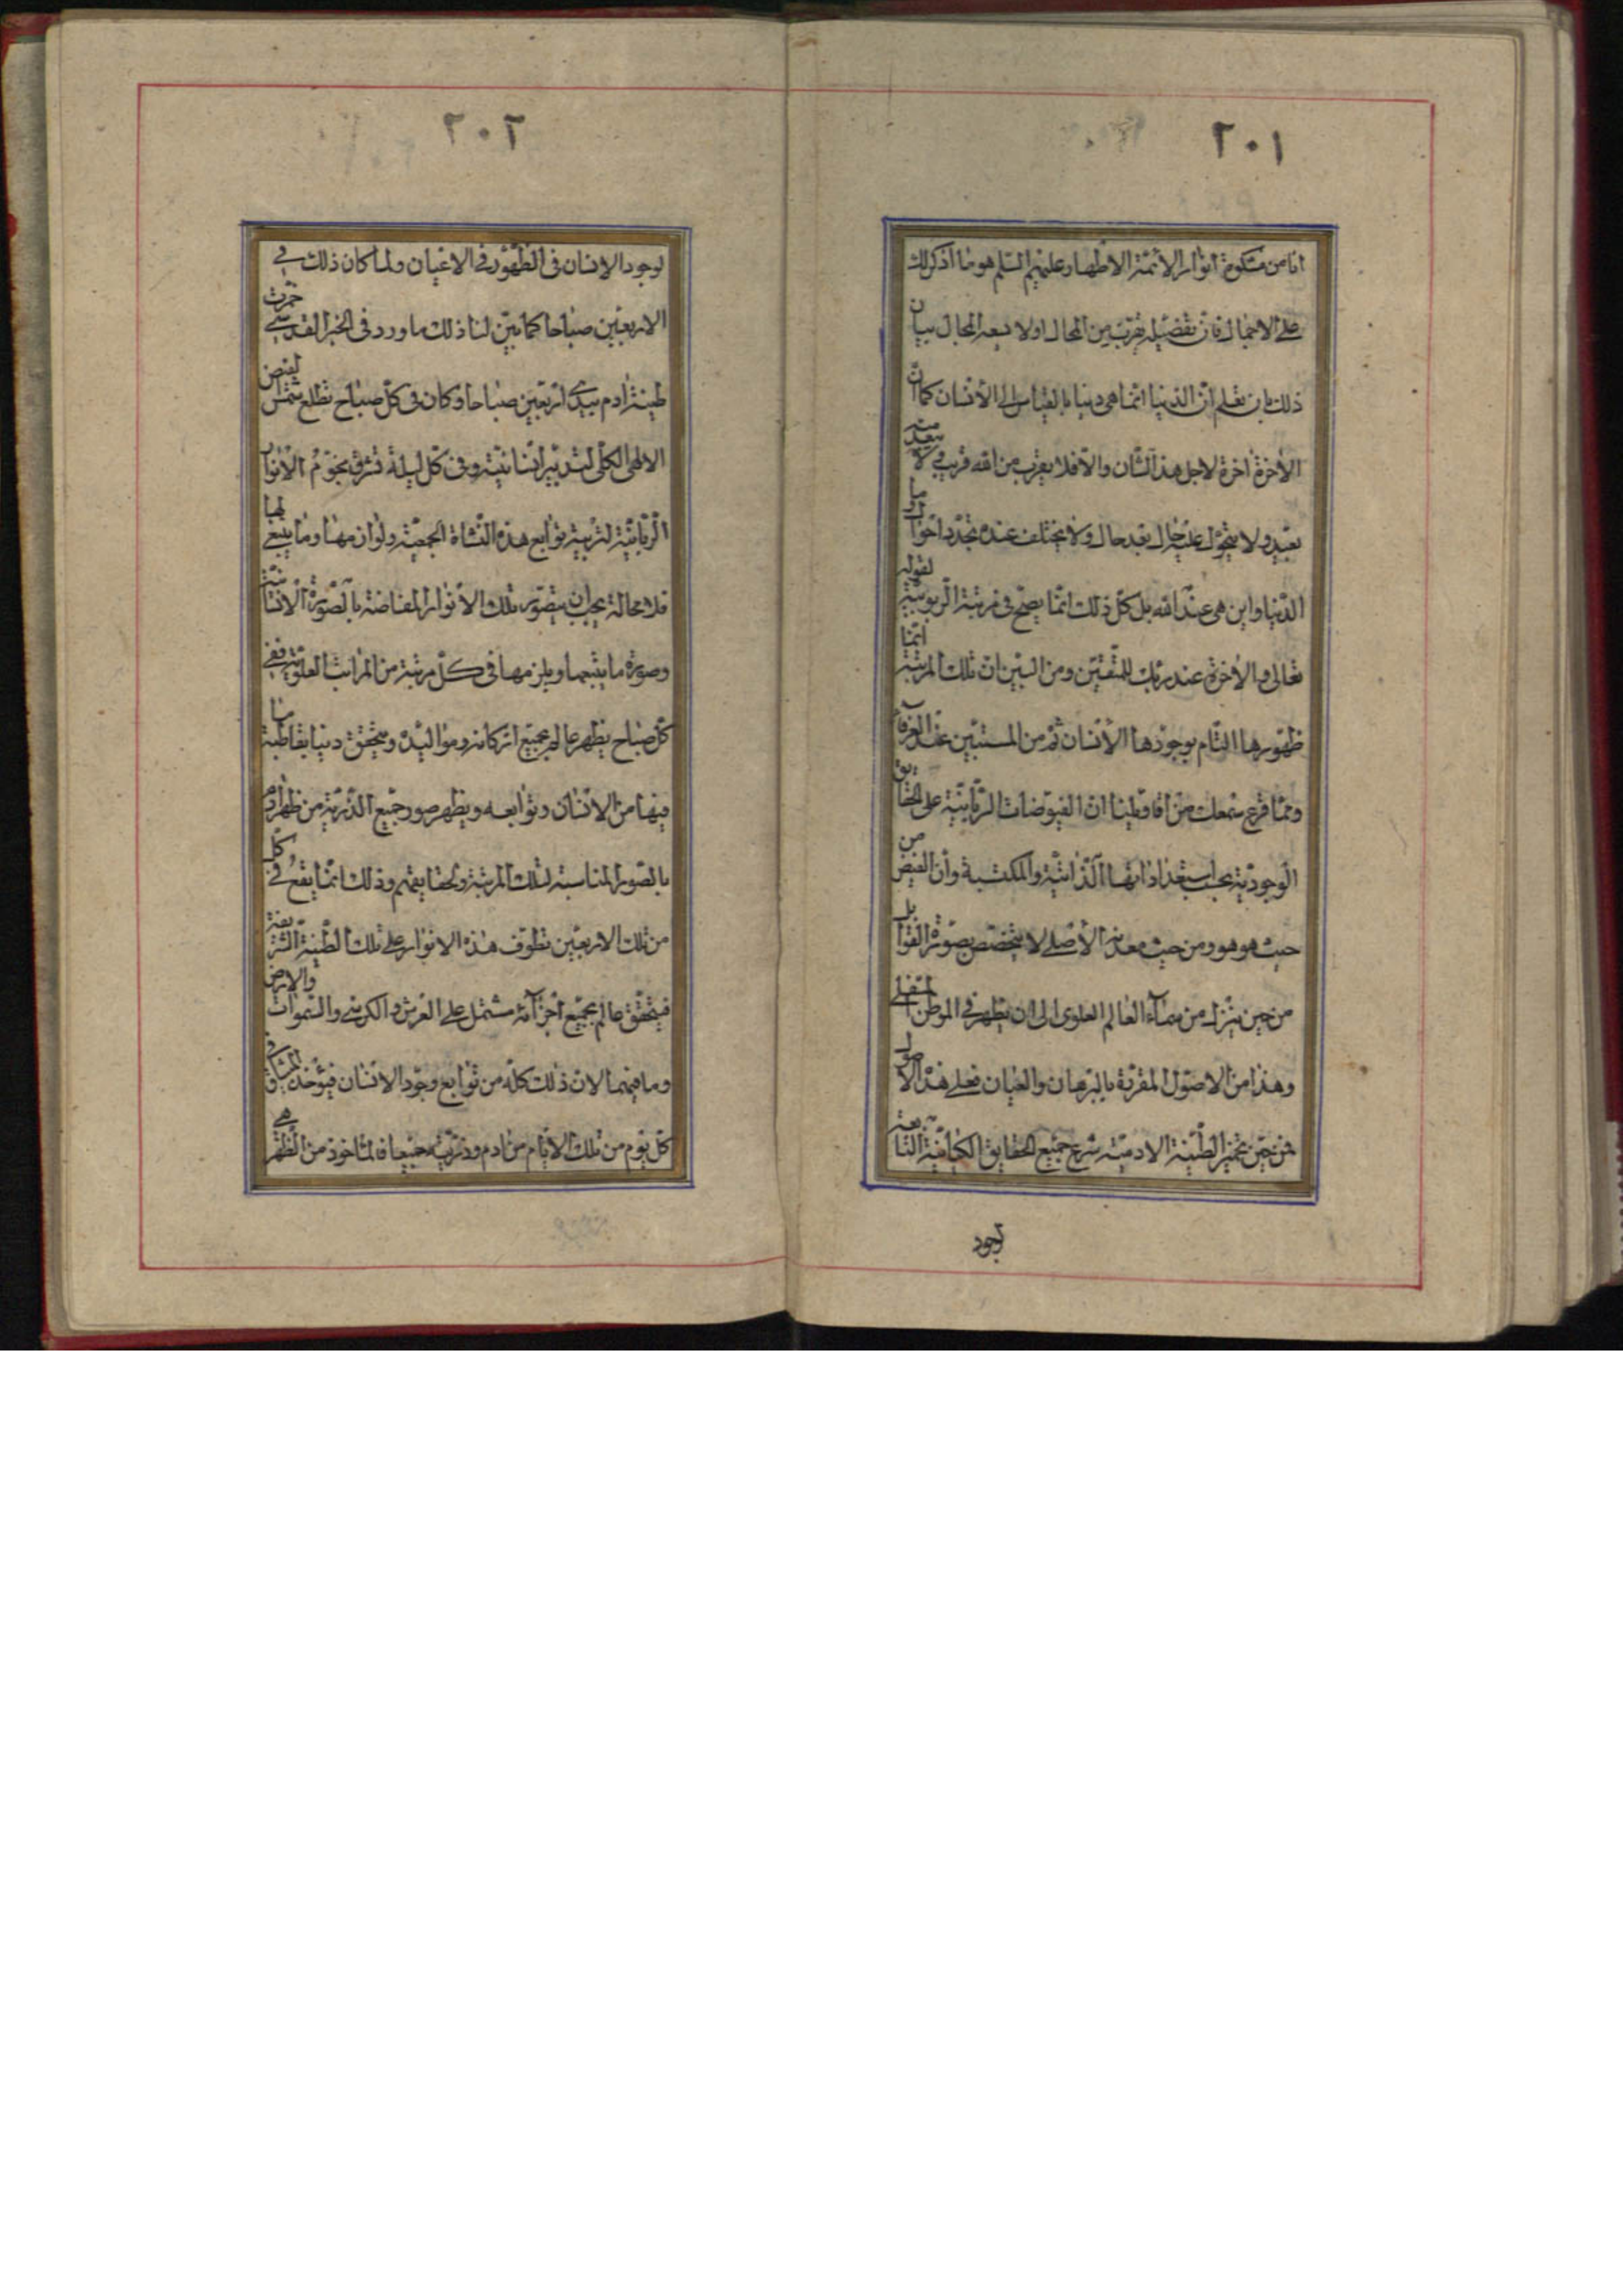 ٢٠١
انا من مشكوة انوار الائمة الاطهار عليهم السلم هو ما اذكر لك
على الاجمال فان تفضيله يقرب من المحال اولا يسعه المجال بيان
ذلك بان تعلم ان الدنيا انما هى دنيا بالقياس الى الانسان كما ان
الاخرة اخرة لاجل هذا الشان والا فلا يعزب من الله قريب ولا يبعد منه
بعيد ولا يتحول عليه حال بعد حال ولا يختلف عنده تجدد احوال وما
الدنيا واين هى عند الله بل كل ذلك انما يصح فى مرتبة الربوبية لقوله
تعالى والاخرة عند ربك للمتقين ومن البين ان تلك المرتبة انما
ظهورها التام بوجود هذا الانسان ثم من المستبين عند العرفاء
ومما قرع سمعك من افاويلنا ان الفيوضات الربانية على الحقايق
الوجودية بحسب استعداداتها الذاتية والمكتسبة وان الفيض من
حيث هو هو ومن حيث معدنه الاصلى لا يتخصص بصورة القوابل
من حين ينزل من سماء العالم العلوى الى ان يظهر فى الموطن السفلى
وهذا من الاصول المقررة بالبرهان والعيان فعلى هذا الاصول
فمن حين تخمير الطينة الادمية شرع جميع الحقايق الكيانية التابعة
لوجود
٢٠٢
لوجود الانسان فى الظهور فى الاعيان ولما كان ذلك فى
الاربعين صباحا كما بين لنا ذلك ما ورد فى الخبر القدسى خمرت
طينة ادم بيدى اربعين صباحا وكان فى كل صباح تطلع شمس الفيض
الالهى الكلى لتدبير انسانيته وفى كل ليلة تشرق نجوم الانوار
الربانية لتربية توابع هذه النشاة الجمعية ولوازمها وما يتبع لها
فلا محالة يجب ان يتصور تلك الانوار المفاضة بالصورة الانسانية
وصورة ما يتبعها ويلزمها فى كل مرتبة من المراتب العلوية ففى
كل صباح يظهر عالم بجميع اركانه ومواليده ويتحقق دنيا بقاطبة ما
فيها من الانسان وتوابعه ويظهر صور جميع الذرية من ظهر ادم
بالصور المناسبة لتلك المرتبة ولحقايقهم وذلك انما يقع فى كل
من تلك الاربعين تطوف هذه الانوار على تلك الطينة الشريفة
فيتحقق عالم بجميع اجزائه مشتمل على العرش والكرسى والسموات والارض
وما فيهما لان ذلك كله من توابع وجود الانسان فيؤخذ الميثاق فى
كل يوم من تلك الايام من ادم وذريته جميعا فالماخوذ من الظهر هى